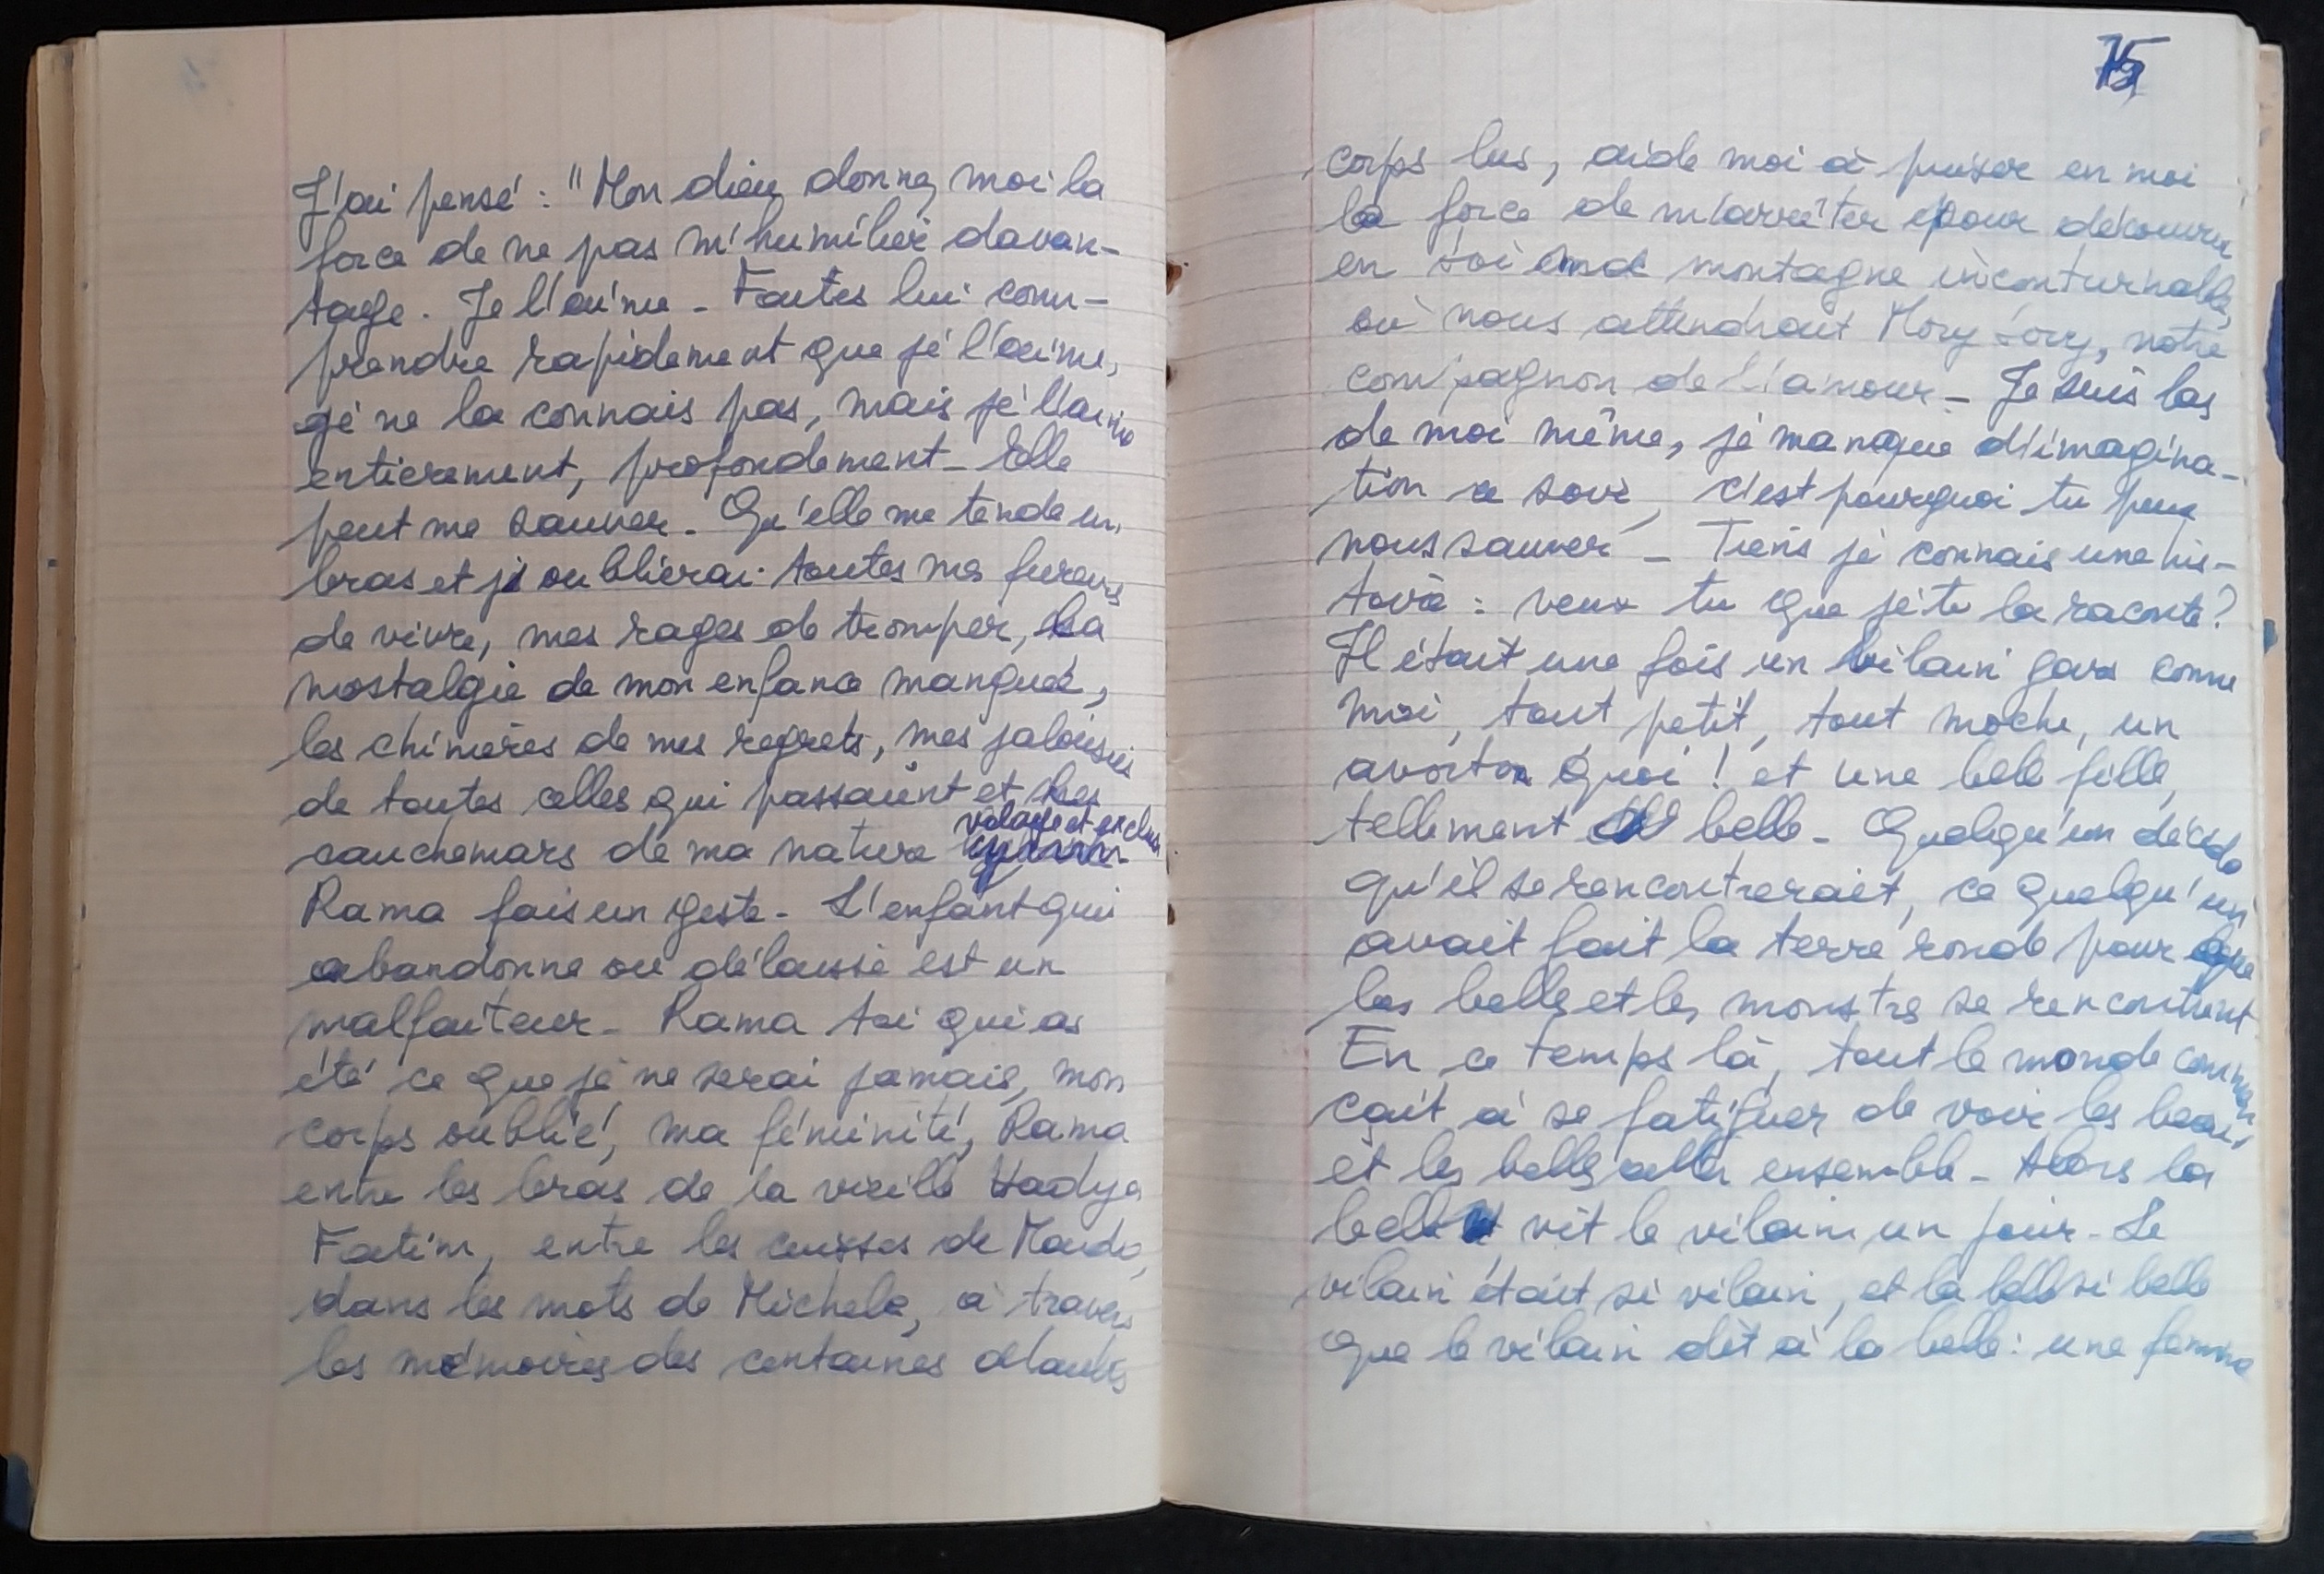 J'ai pensé : "Mon dieu donnez moi la
force de ne pas m'humilier davan-
tage. Je l'aime - Faites lui com-
prendre rapidement que je l'aime,
je ne la connais pas, mais je l'aime
entierement, profondement - Elle
peut me sauver - Qu'elle me tende un
bras et j'oublierai toutes mes fureurs
de vivre, mes rages de tromper, la
nostalgie de mon enfance manquée,
les chimères de mes regrets, mes jalousies
de toutes celles qui passaient et les
volage et
cauchemars de ma nature
Rama fais un geste - L'enfant qui
abandonne ou délaisse est un
malfaiteur - Rama toi qui as
été ce que je ne serai jamais, mon
corps oublié, ma féminité, Rama
entre les bras de la vieille Hadya
Fatim, entre les cuisses de
dans les mots de Michele, à travers
les mémoires des centaines d'autres
75
corps lus, aide moi à puiser en moi
la force de m'arrêter pour découvrir
en toi montagne inconturnable,
où nous attendrait Mory Fory, notre
compagnon de l'amour - Je suis las
de moi même, je manque d'imagina-
tion ce soir, c'est pourquoi tu peux
nous sauver - Tiens je connais une his-
toire : veux tu que je te la raconte ?
Il était une fois un vilain gars comme
moi, tout petit, tout moche, un
avorton quoi ! et une belle fille,
tellement belle - Quelqu'un décida
qu'il se rencontrerait, ce quelqu'un
avait fait la terre ronde pour que
les belles et les monstres se rencontrent
En ce temps là, tout le monde commen
cait à se fatiguer de voir les beaux
et les belles aller ensemble - Alors la
belle vit le vilain un jour - Le
vilain était si vilain, et la belle si belle
que le vilain dit à la belle : une femme